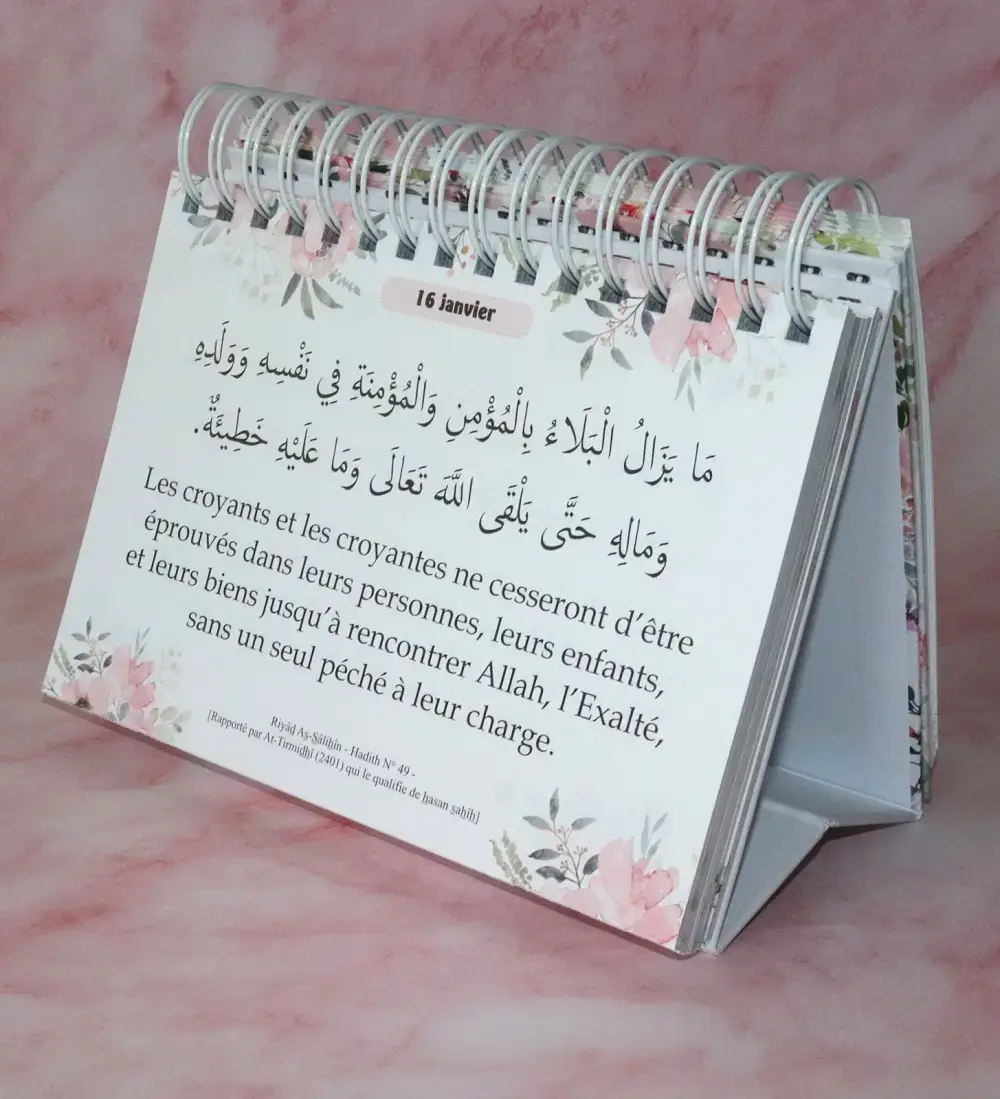 16 janvier
مَا يَزَالُ الْبَلَاءُ بِالْمُؤْمِنِ وَالْمُؤْمِنَةِ فِي نَفْسِهِ وَوَلَدِهِ
وَمَالِهِ حَتَّى يَلْقَى اللَّهَ تَعَالَى وَمَا عَلَيْهِ خَطِيئَةٌ.
Les croyants et les croyantes ne cesseront d’être
éprouvés dans leurs personnes, leurs enfants,
et leurs biens jusqu’à rencontrer Allah, l’Exalté,
sans un seul péché à leur charge.
Riyâḏ Aṣ-Ṣâliḥîn - Hadith N° 49 -
[Rapporté par At-Tirmidhî (2401) qui le qualifie de ḥasan ṣaḥîḥ]